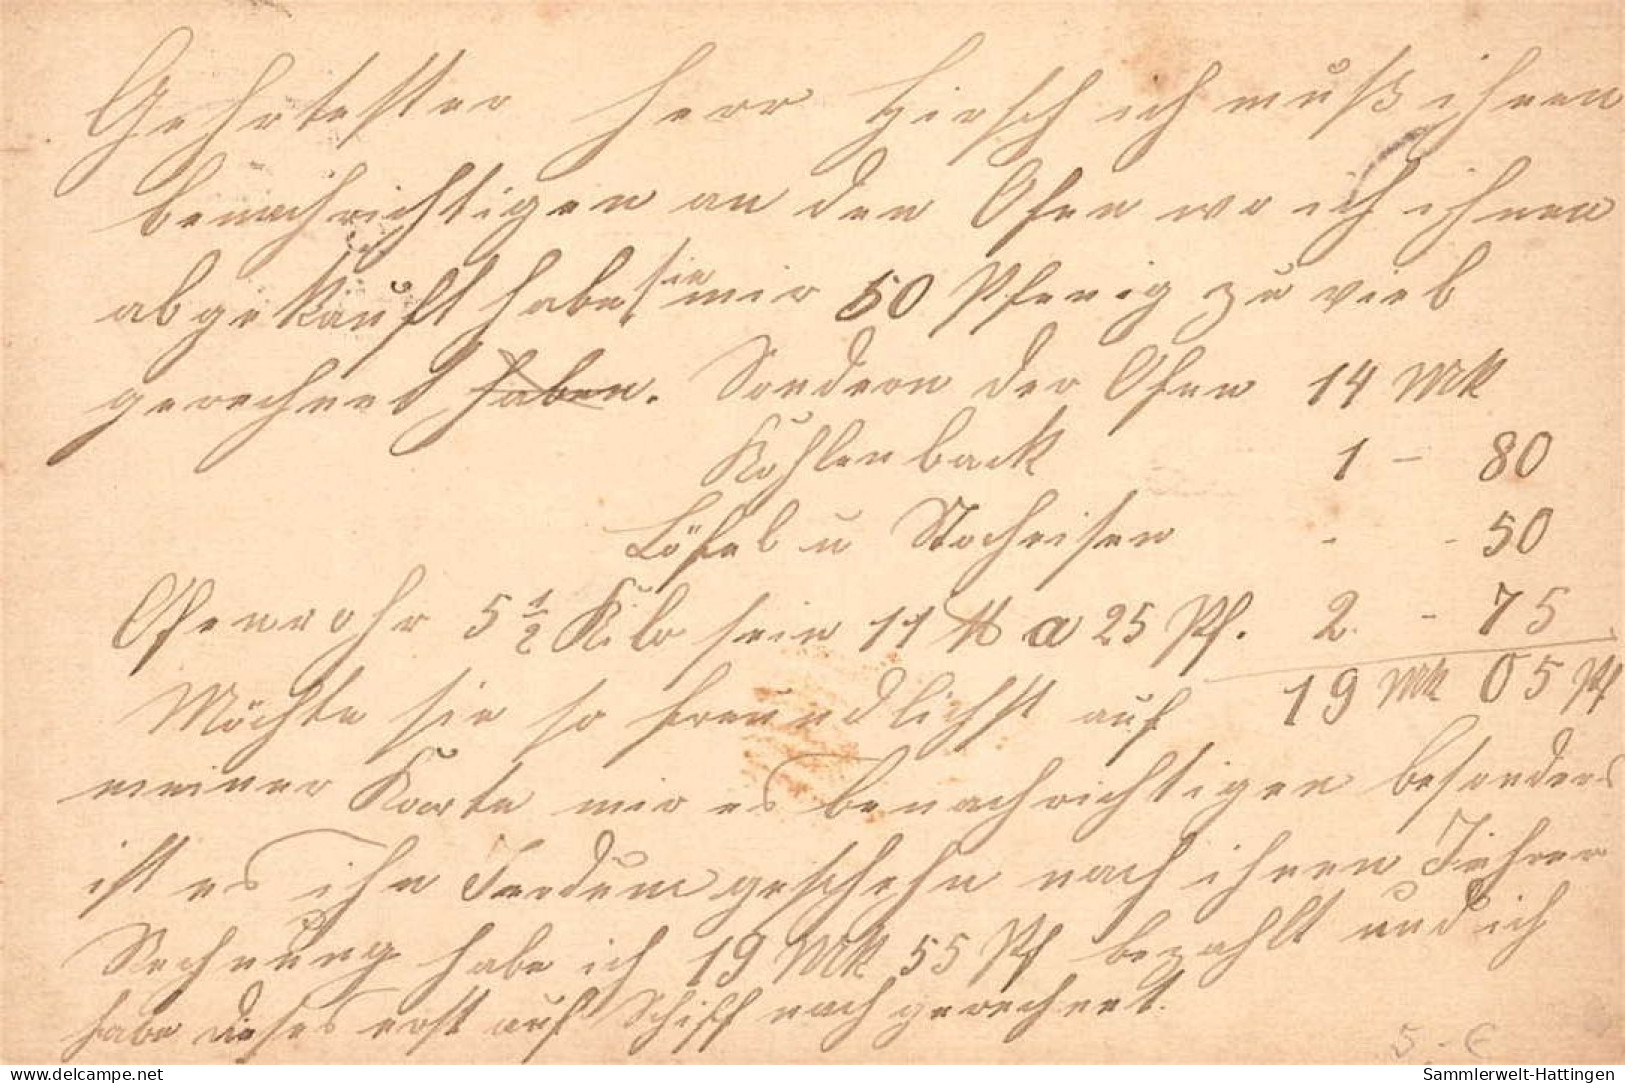 Gehrtester Herr Hirsch ich muß ihnen
benachrichtigen an den Ofen wo ich ihnen
abgekauft habe sie mir 50 Pfenig zu viel
gerechnet haben. Sondern der Ofen 14 Mk
Kohlenback 1 - 80
Löfel u Stocheisen - - 50
Ofenrohr 5 1/2 Kilo sein 11 ℔ a 25 Pf. 2 - 75
19 Mk 05 Pf
Möchte sie so freundlichst auf
meiner Karte mir es benachrichtigen besonders
ist es ihn Irrdum geschehn nach ihrer
Rechnung habe ich 19 Mk 55 Pf bezahlt und ich
habe dieses erst auf Schiff nach gerechnet.
5,- €
www.delcampe.net
Sammlerwelt-Hattingen